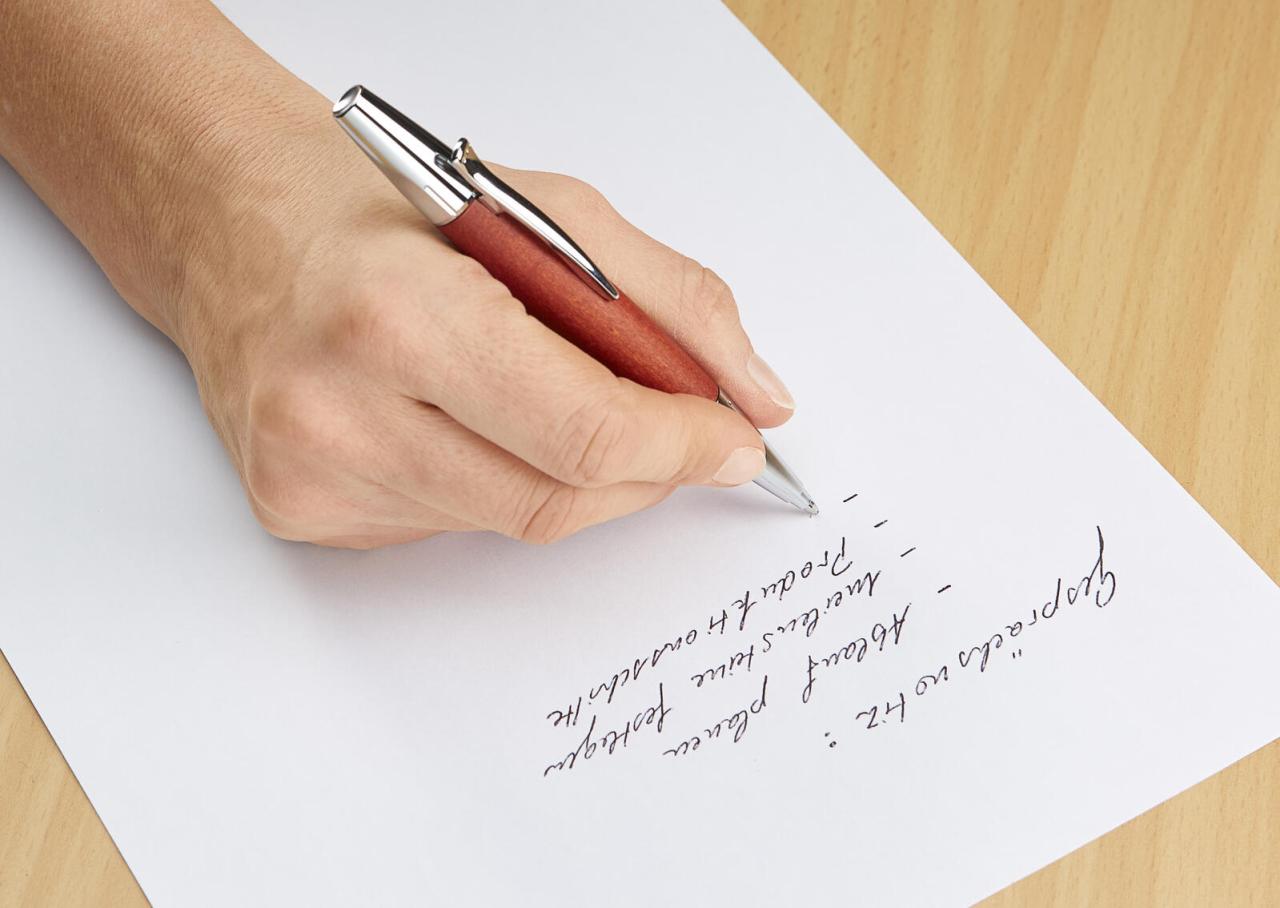 Gesprächsnotiz :
- Ablauf planen
- Meilensteine festlegen
- Produktionsschritte
-